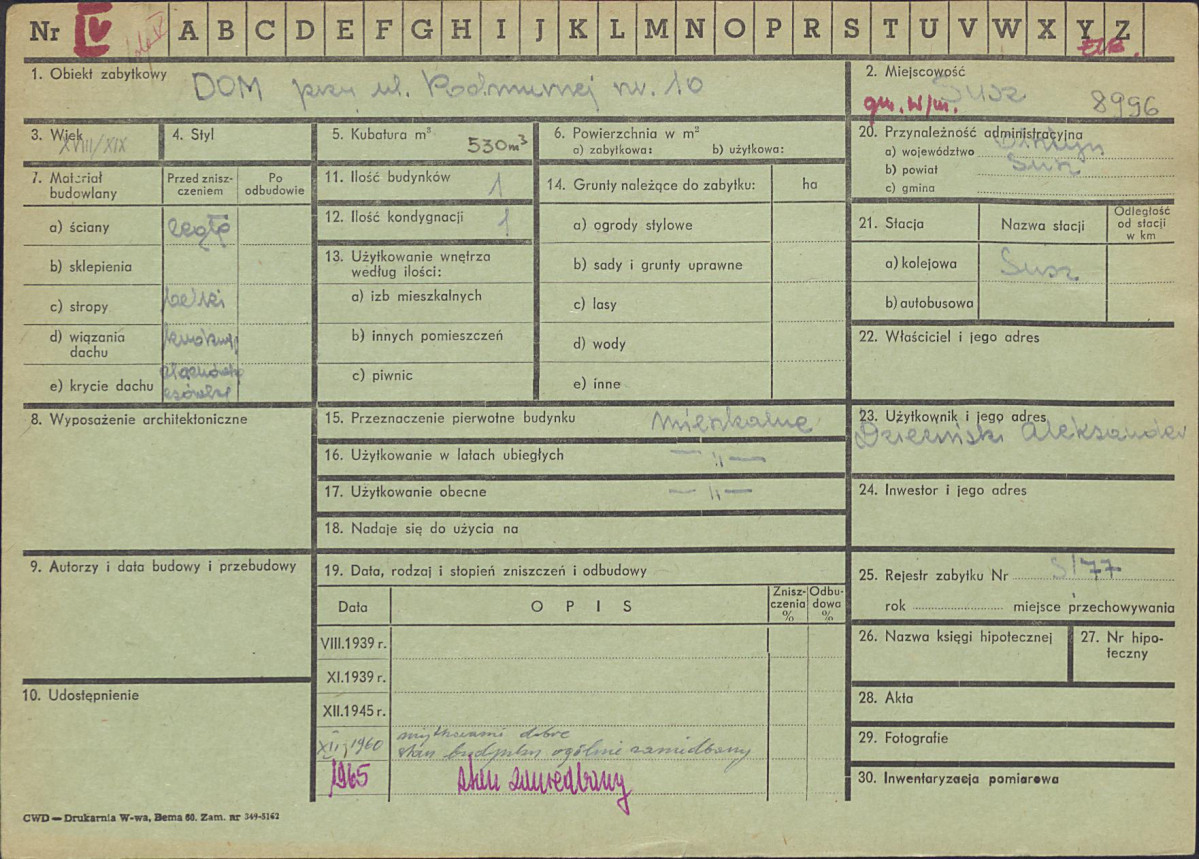 Nr IV A B C D E F G H I J K L M N O P R S T U V W X Y Z
1. Obiekt zabytkowy DOM przy ul. nr. 10
2. Miejscowość Susz
gm. w/m. 8996
3. Wiek XVIII/XIX
4. Styl
5. Kubatura m³ 530 m³
6. Powierzchnia w m²
a) zabytkowa: b) użytkowa:
20. Przynależność administracyjna
a) województwo
b) powiat Susz
c) gmina
7. Materiał budowlany
Przed znisz-
czeniem
Po
odbudowie
a) ściany cegła
b) sklepienia
c) stropy belki
d) wiązania
dachu
e) krycie dachu
11. Ilość budynków 1
12. Ilość kondygnacji 1
13. Użytkowanie wnętrza
według ilości:
a) izb mieszkalnych
b) innych pomieszczeń
c) piwnic
14. Grunty należące do zabytku: ha
a) ogrody stylowe
b) sady i grunty uprawne
c) lasy
d) wody
e) inne
21. Stacja
Nazwa stacji
Odległość
od stacji
w km
a) kolejowa Susz
b) autobusowa
22. Właściciel i jego adres
8. Wyposażenie architektoniczne
15. Przeznaczenie pierwotne budynku mieszkalne
16. Użytkowanie w latach ubiegłych — „ —
17. Użytkowanie obecne — „ —
18. Nadaje się do użycia na
23. Użytkownik i jego adres
Aleksander
24. Inwestor i jego adres
9. Autorzy i data budowy i przebudowy
19. Data, rodzaj i stopień zniszczeń i odbudowy
Data
O P I S
Znisz-
czenia
%
Odbu-
dowa
%
VIII.1939 r.
XI.1939 r.
XII.1945 r.
XII 1960 dobre
stan budynku ogólnie zaniedbany
1965 stan zaniedbany
25. Rejestr zabytku Nr S/77
rok miejsce przechowywania
26. Nazwa księgi hipotecznej
27. Nr hipo-
teczny
10. Udostępnienie
28. Akta
29. Fotografie
30. Inwentaryzacja pomiarowa
CWD — Drukarnia W-wa, Bema 60. Zam. nr 349-5162